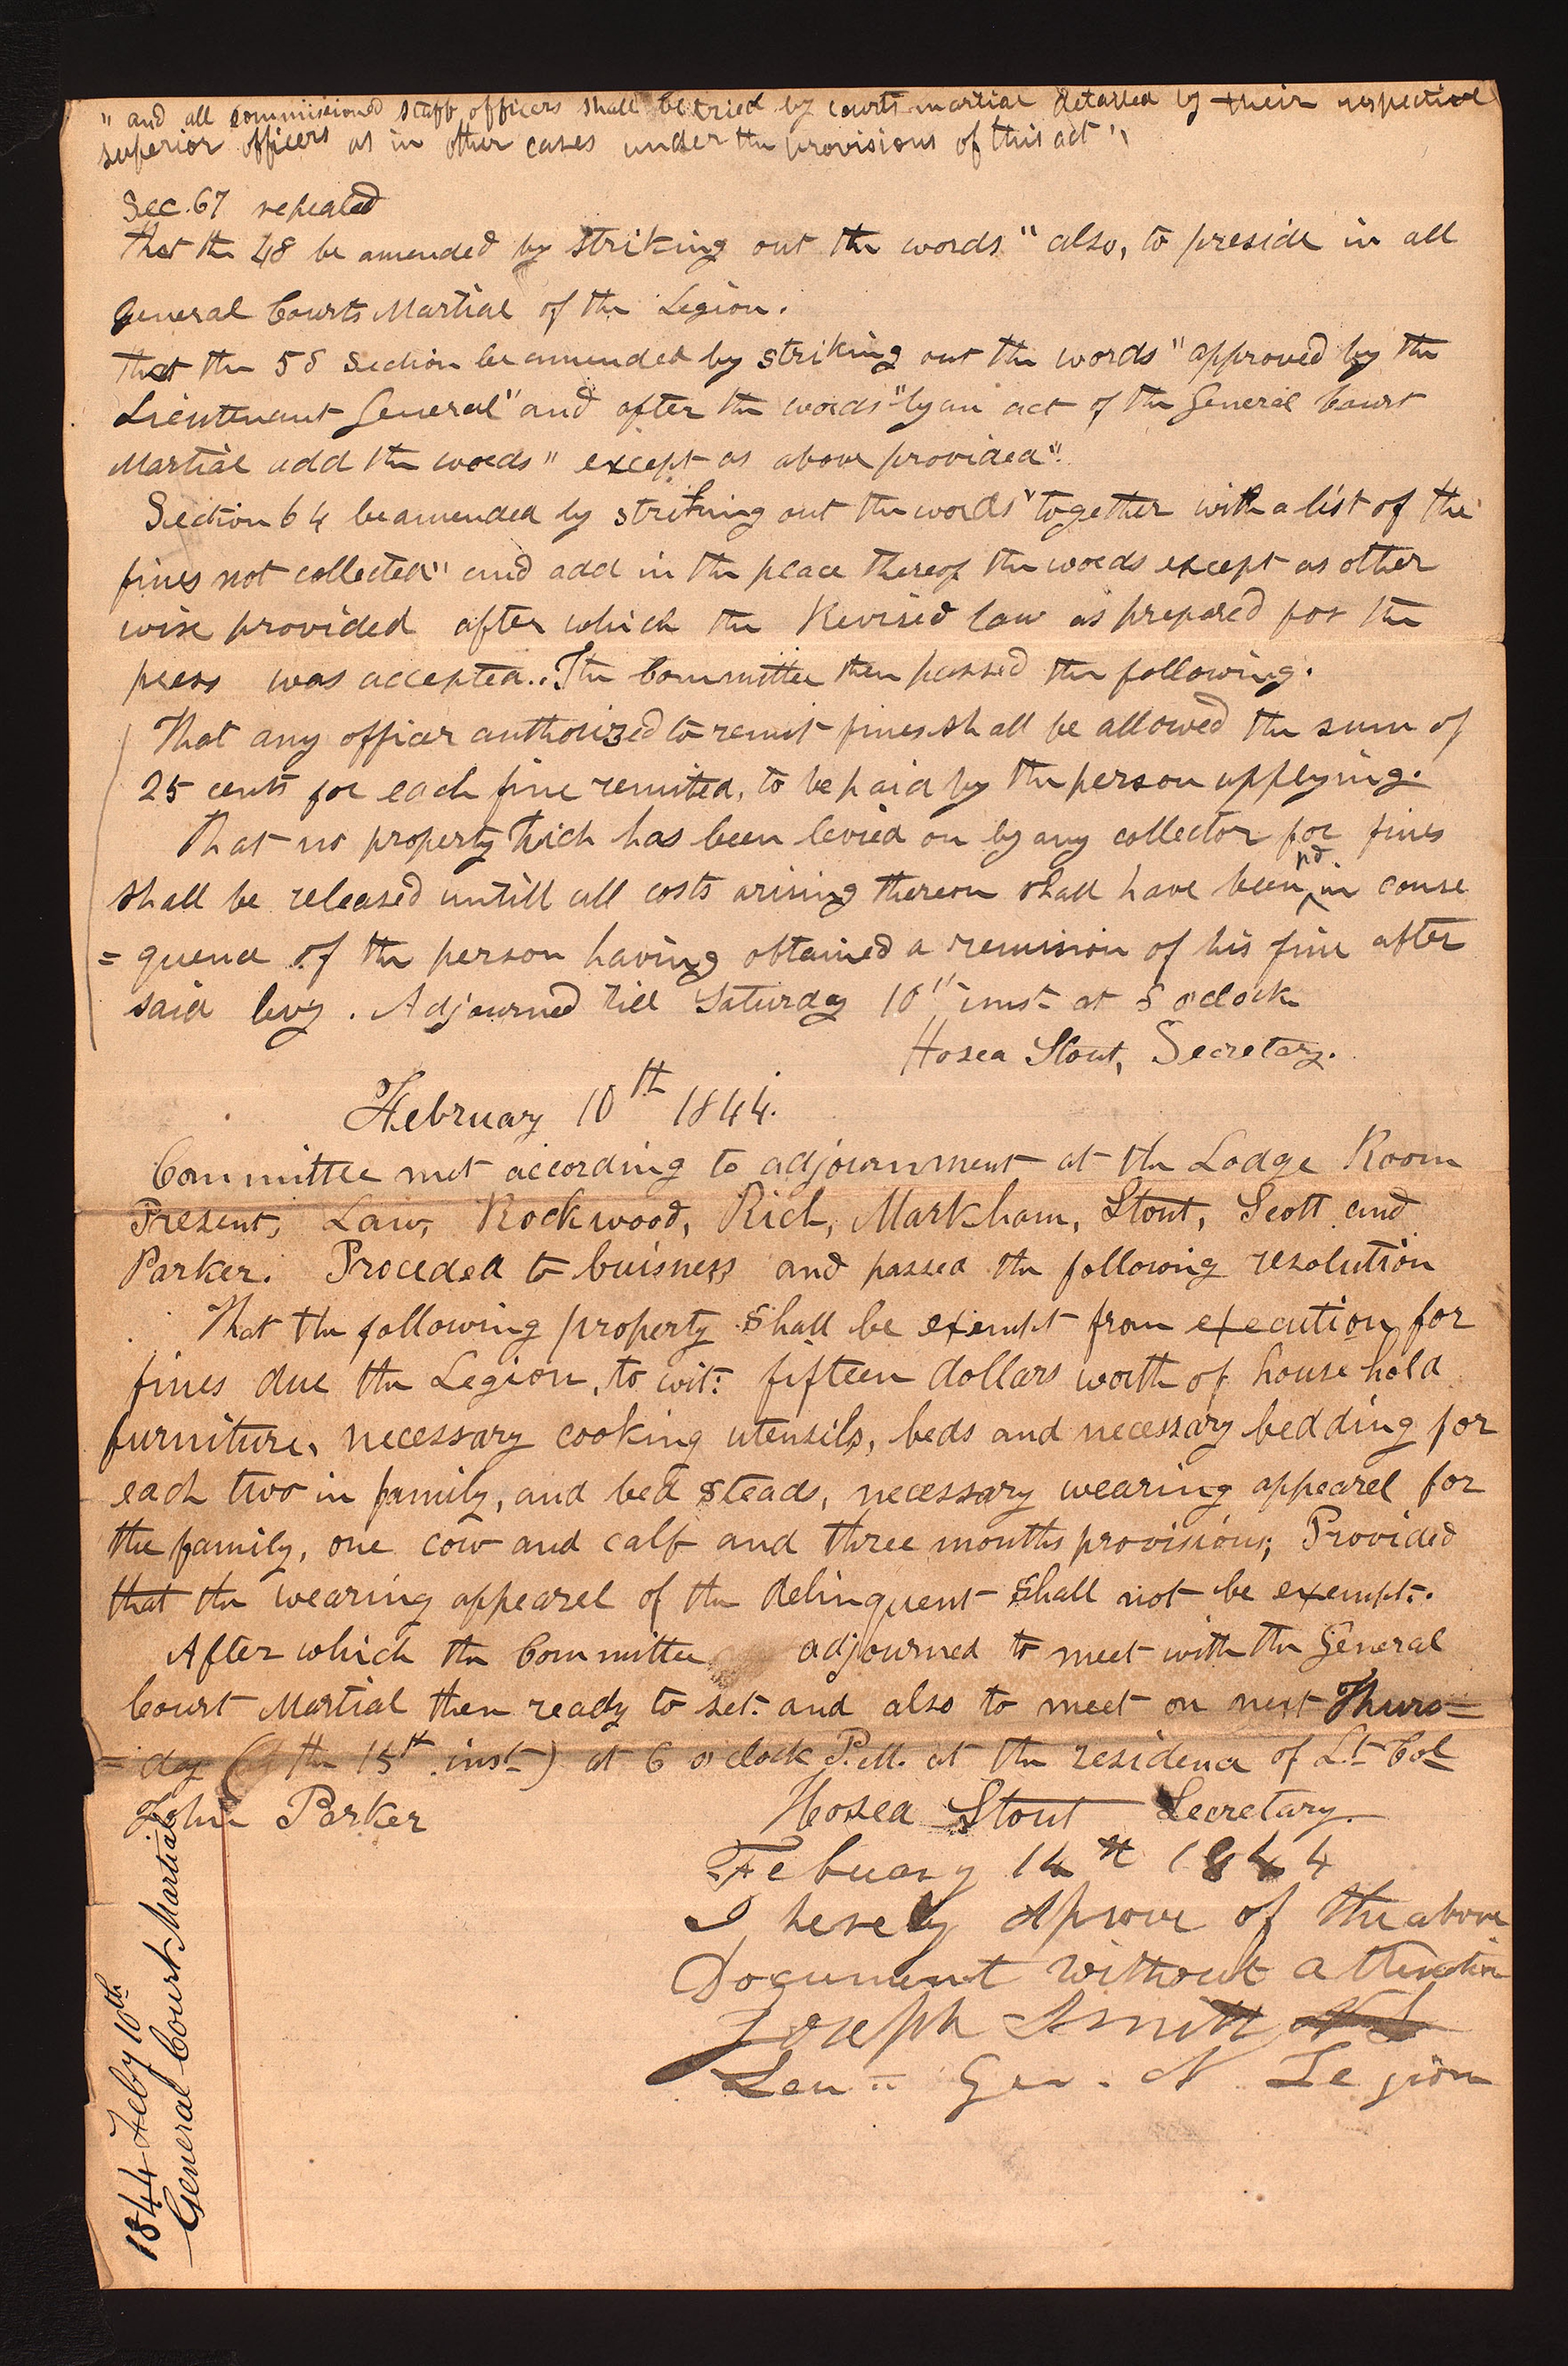 " and all commissioned staff officers shall be tried by courts martial detailed by their respective
superior officers as in other cases under the provisions of this act "
Sec. 67 repealed
That the 48 be amended by striking out the words " also, to preside in all
General Courts Martial of the Legion.
That the 58 Section be amended by striking out the words " approved by the
Lieutenant General" and after the words "by an act of the General Court
Martial add the words " except as above provided".
Section 64 be amended by striking out the words "together with a list of the
fines not collected" and add in the place thereof the words except as other
wise provided after which the Revised law as prepared for the
press was accepted.. The Committee then passed the following.
That any officer authorized to remit fines shall be allowed the sum of
25 cents for each fine remited, to be paid by the person applying.
That no property which has been levied on by any collector for fines
shall be released untill all costs arising thereon shall have been pd in conse
= quence of the person having obtained a remision of his fine after
said levy. Adjourned till Saturday 10th inst at 8 oclock
Hosea Stout, Secretary.
February 10th 1844.
Committee met according to adjournment at the Lodge Room
Present, Law, Rockwood, Rich, Markham, Stout, Scott and
Parker. Proceded to buisness and passed the following resolution
That the following property shall be exempt from execution for
fines due the Legion, to wit: fifteen dollars worth of house hold
furniture, necessary cooking utensils, beds and necessary bedding for
each two in family, and bed steads, necessary wearing appearel for
the family, one cow and calf and three months provisions; Provided
that the wearing appearel of the delinquent shall not be exempt.
After which the Committee adjourned to meet with the General
Court Martial then ready to set. and also to meet on next Thurs=
= day ( the 15th inst ) at 6 o'clock P.M. at the residence of Lt Col
John Parker
Hosea Stout Secretary
Febuary 14th 1844
I hereby Aprove of the above
Document without attention
Joseph Smith
Leu= Gen. N Legion
1844 Feby 10th
General Court Martial